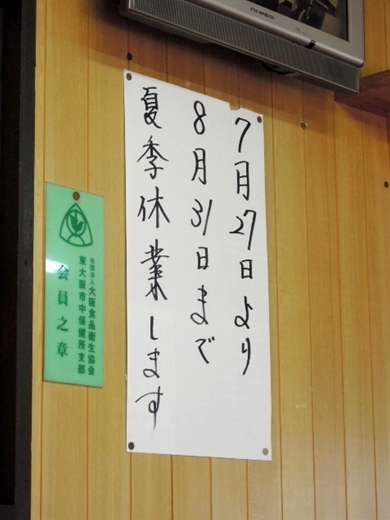 7月27日より
8月31日まで
夏季休業します
社団法人 大阪食品衛生協会
東大阪市中保健所支部
会員之章